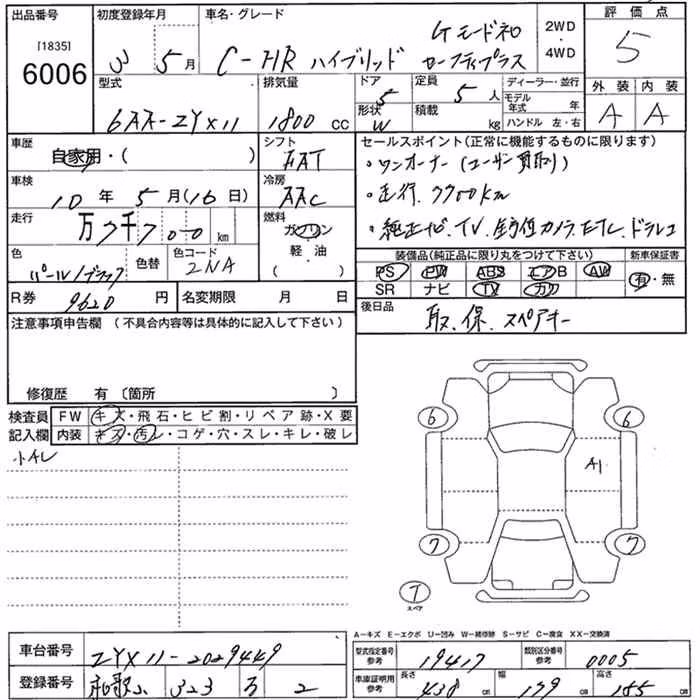 出品番号 初度登録年月 車名・グレード 評価点
[1835]
6006
3 5月 C-HR ハイブリッド Gモードネロ セーフティプラス 2WD 4WD 5
型式 排気量 ドア 定員 ディーラー・並行 外装 内装
6AA-ZYX11 1800 CC 5 5人 モデル年式 年 A A
形状 W 積載 kg ハンドル 左・右
車歴 自家用・( ) シフト FAT
セールスポイント(正常に機能するものに限ります)
・ワンオーナー(ユーザー買取)
・走行、7700km
・純正ナビ、TV、全方位カメラ、ETC、ドラレコ
車検 10年 5月(16日) 冷房 AAC
走行 万7千700 km 燃料 ガソリン 軽・油
色 パール/ブラック 色替 色コード 2NA
装備品(純正品に限り丸をつけて下さい) 新車保証書
PS PW ABS エアB AW 有・無
SR ナビ TV カワ
R券 9620円 名変期限 月 日
後日品 取、保、スペアキー
注意事項申告欄 (不具合内容等は具体的に記入して下さい)
修復歴 有 (箇所 )
検査員 FW キズ・飛石・ヒビ割・リペア跡・X要
記入欄 内装 キズ・汚レ・コゲ・穴・スレ・キレ・破レ
小AL
6 6
A1
7 7
7
スペア
A-キズ E-エクボ U-凹み W-補修跡 S-サビ C-腐食 XX-交換済
車台番号 ZYX11-2029449
型式指定番号 参考 19417 類別区分番号 参考 0005
登録番号 和歌山 323 ろ 2
車庫証明用 参考 長さ 438 cm 幅 179 cm 高さ 155 cm